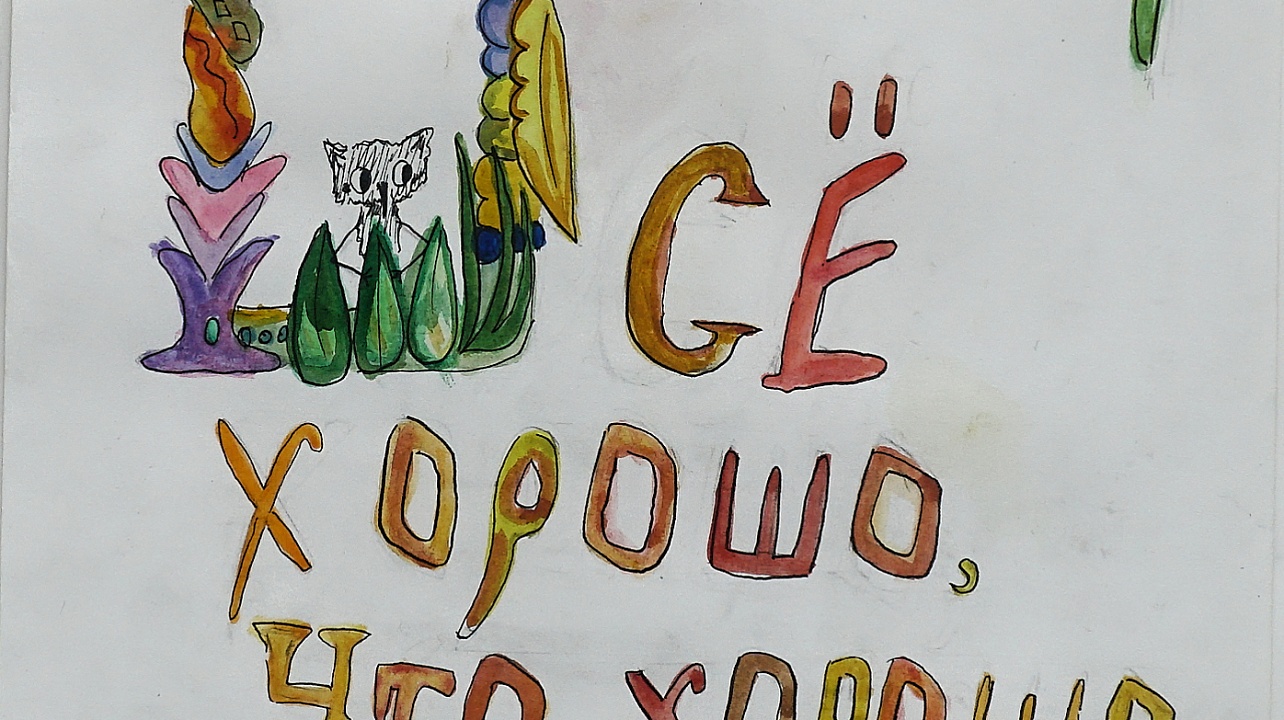 ВСЁ
ХОРОШО,
ЧТО ХОРОШО